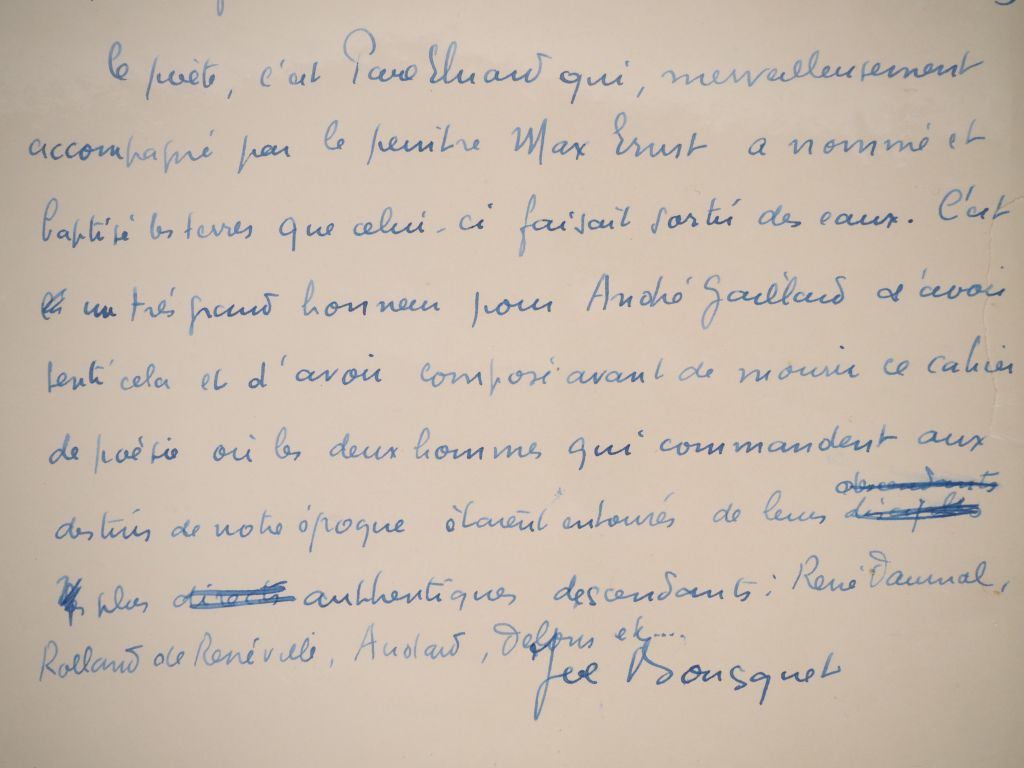 le poète, c'est Paul Eluard qui, merveilleusement
accompagné par le peintre Max Ernst a nommé et
baptisé les terres que celui-ci faisait sortir des eaux. C'est
un très grand honneur pour André Gaillard d'avoir
senti cela et d'avoir composé avant de mourir ce cahier
de poésie où les deux hommes qui commandent aux
destins de notre époque étaient entourés de leurs
descendants
disciples
plus directs authentiques descendants : René Daumal,
Rolland de Renéville, Audard, Delons etc....
Joë Bousquet